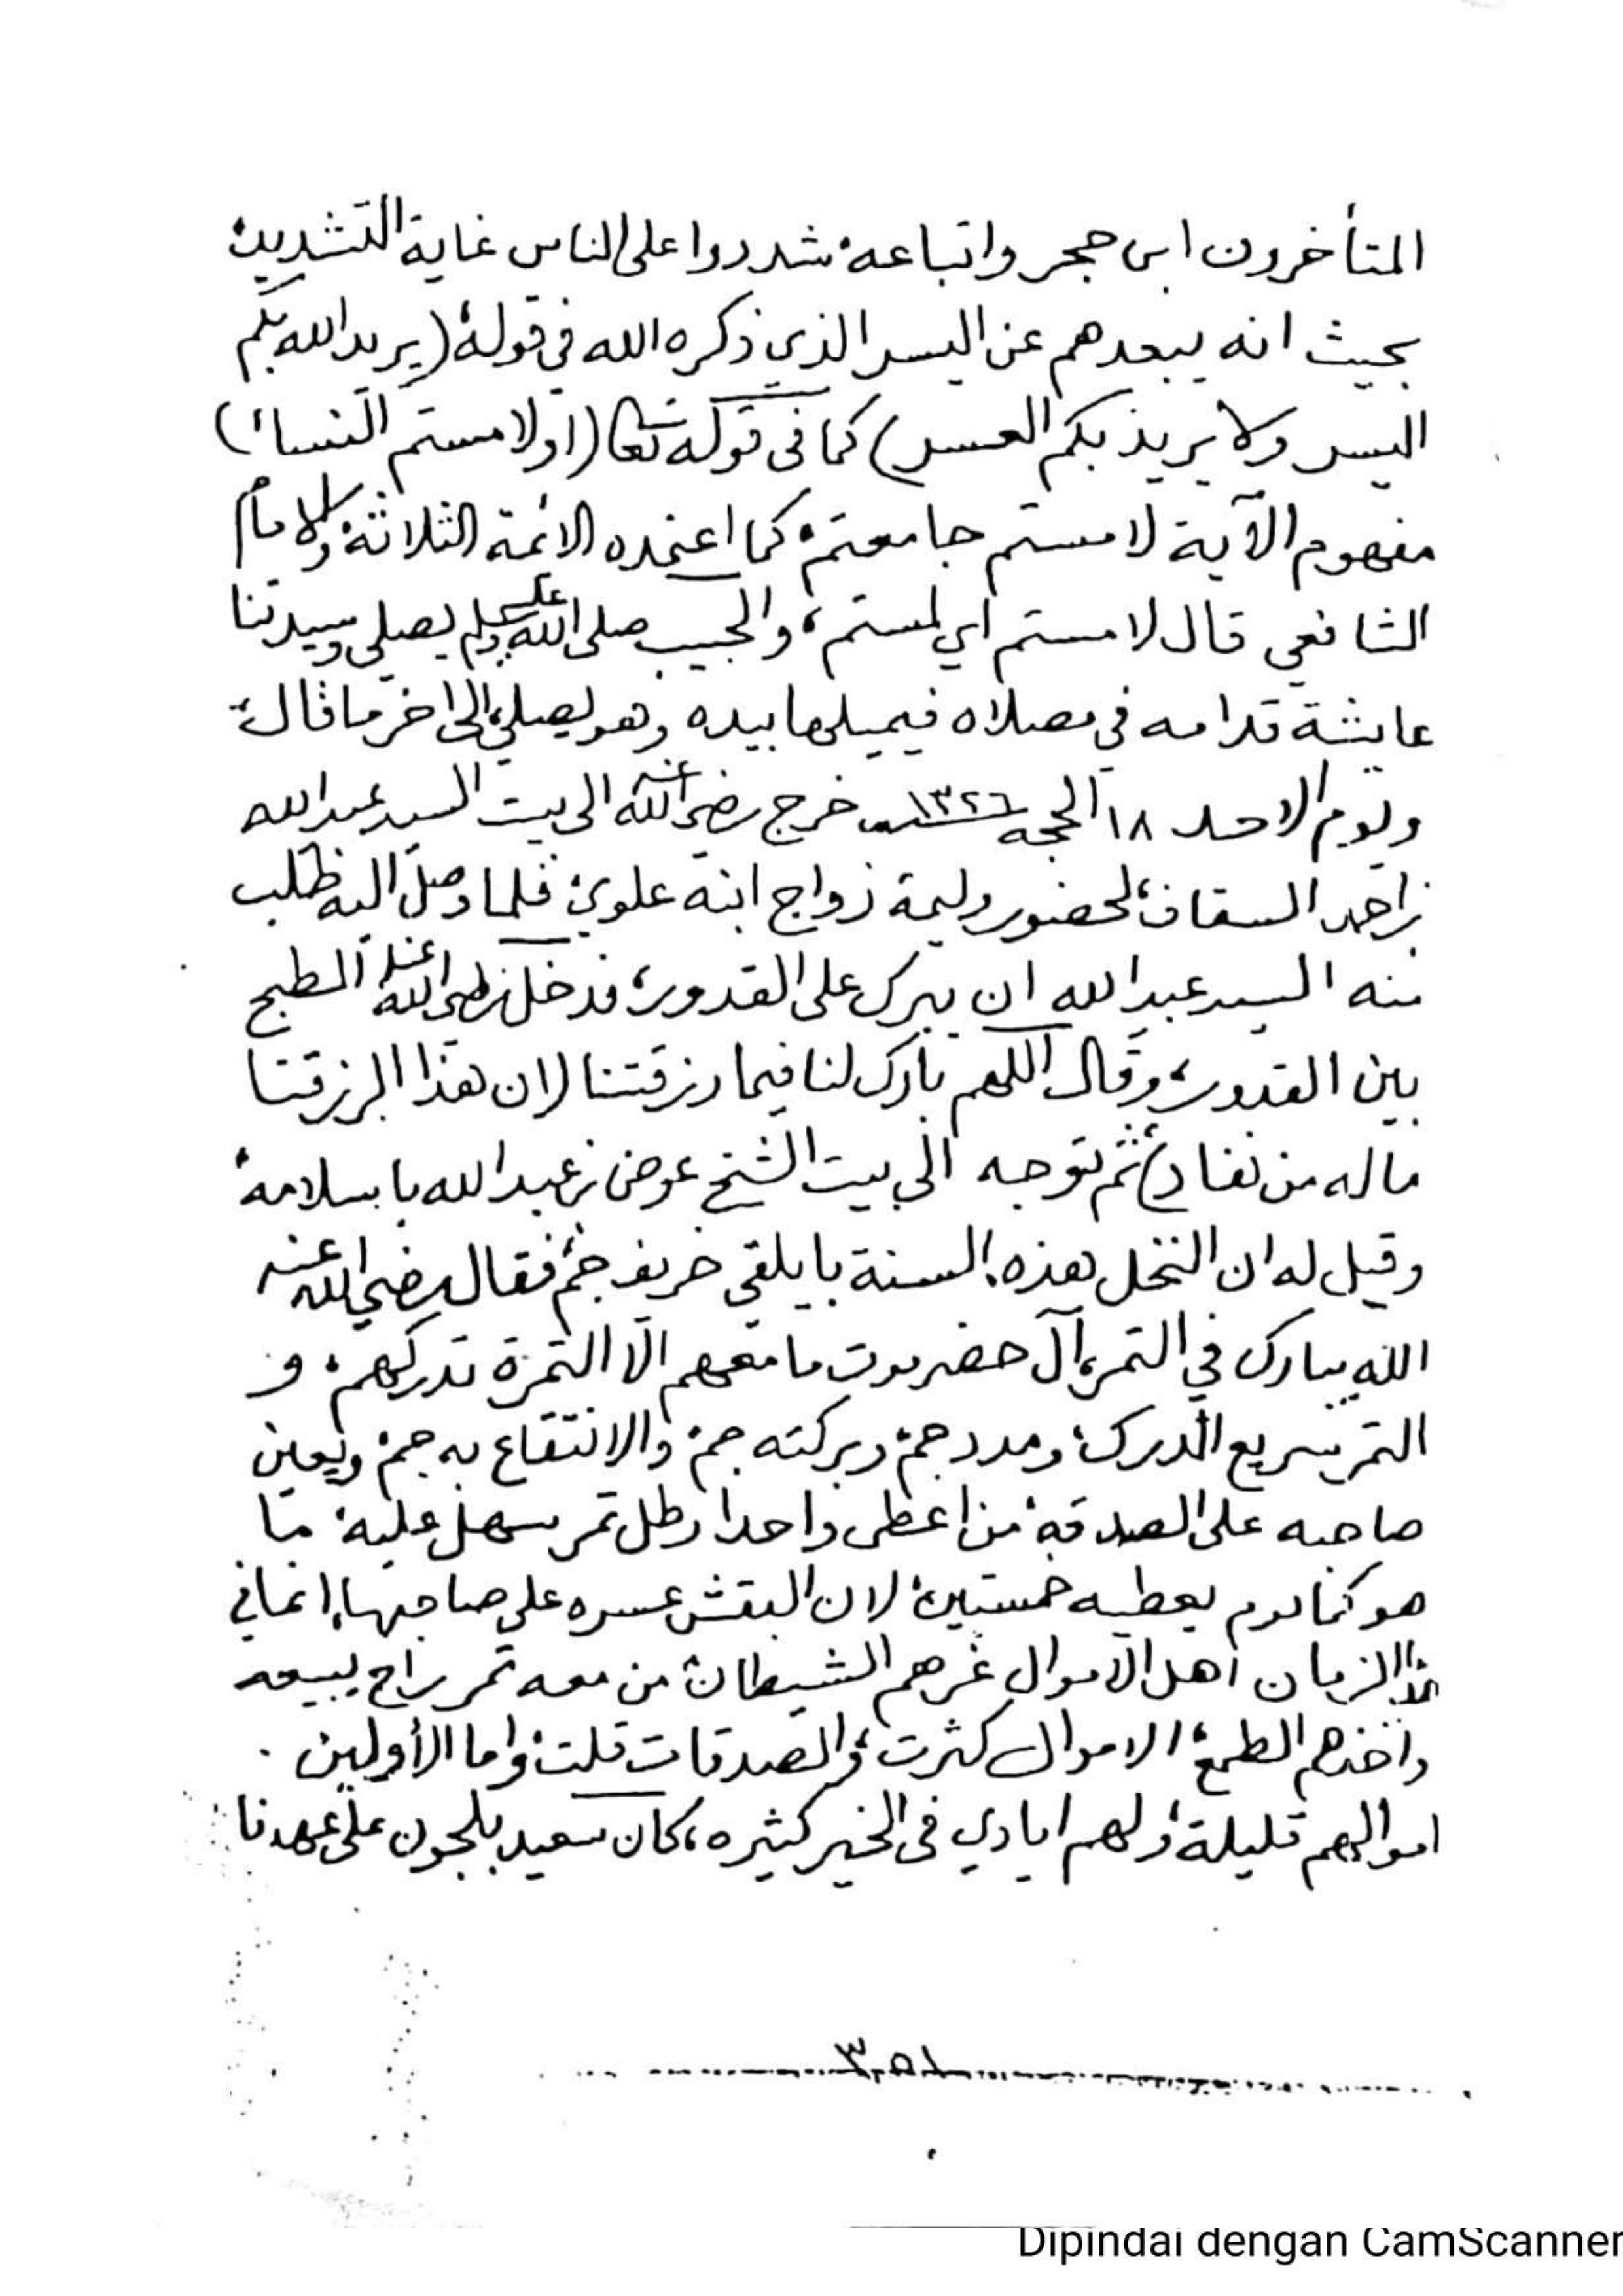 المتأخرون ابن حجر واتباعه، شددوا على الناس غاية التشديد،
بحيث انه يبعدهم عن اليسر الذي ذكره الله في قوله، (يريد الله بكم
اليسر ولا يريد بكم العسر) كما في قوله تعالى (او لامستم النساء)
مفهوم الآية لامستم جامعتم، كما اعتمده الائمة الثلاثة، والامام
الشافعي قال لامستم اي لمستم، والحبيب صلى الله عليه وسلم يصلي وسيدتنا
عايشة قدامه في مصلاه فيميلها بيده وهو يصلي، الى اخر ما قال،
ويوم الاحد ١٨ الحجه ١٣٢٦ خرج رضي الله عنه الى بيت السيد عبدالله
بن احمد السقاف، لحضور وليمة زواج ابنه علوي، فلما وصل اليه طلب
منه السيد عبدالله ان يبرك على القدور، فدخل رضي الله عنه المطبخ
بين القدور، وقال اللهم بارك لنا فيما رزقتنا (ان هذا لرزقنا
ما له من نفاد) ثم توجه الى بيت الشيخ عوض بن عبدالله باسلامه،
وقيل له ان النخل هذه السنة بايلقي خريف جم، فقال رضي الله عنه
الله يبارك في التمر، آل حضرموت ما معهم الا التمرة تدركهم، و
التمر سريع الدرك، ومدد جم، وبركته جم، والانتفاع به جم، ويعين
صاحبه على الصدقة، من اعطى واحدا رطل تمر سهل عليه، ما
هو كما يوم يعطيه خمستين، لان البقش عسره على صاحبها، انما في
هذا الزمان اهل الاموال غرهم الشيطان، من معه تمر راح يبيعه
واخذهم الطمع، الاموال كثرت، والصدقات قلت، واما الأولين .
اموالهم قليلة، ولهم ايادي في الخير كثيره، كان سعيد بلجون على عهدنا
٣٥١
Dipindai dengan CamScanner